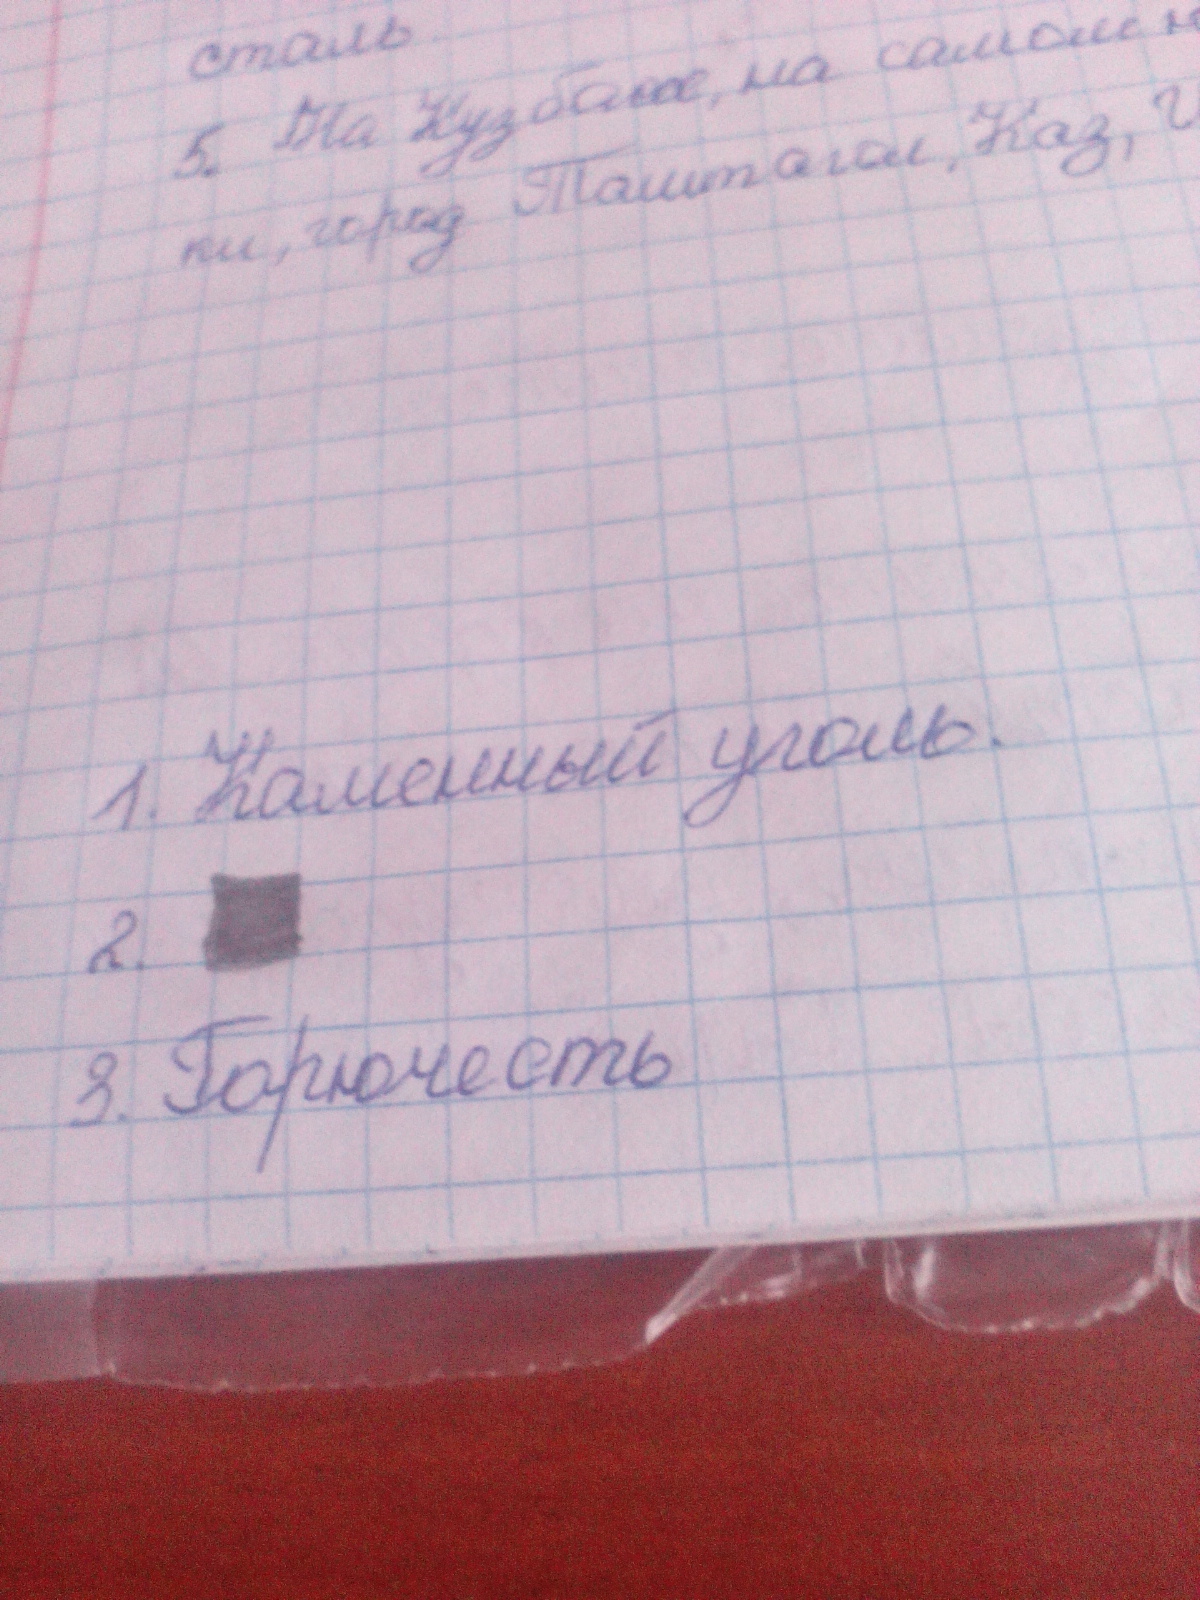 сталь
5. На Кузбассе, на самом
ки, город Таштагол, Каз,
1. Каменный уголь.
2.
3. Горючесть